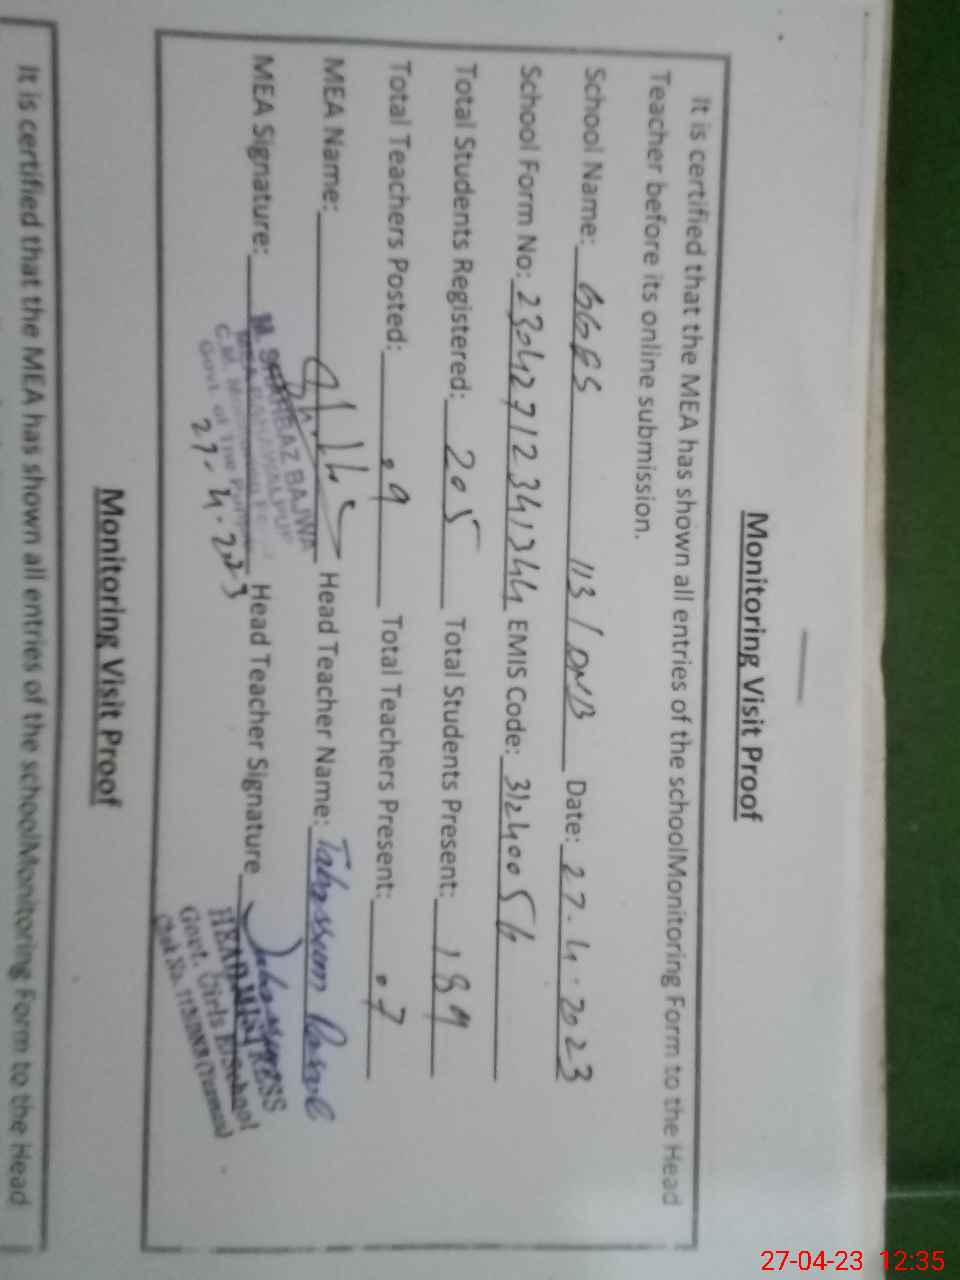 Monitoring Visit Proof
It is certified that the MEA has shown all entries of the schoolMonitoring Form to the Head
Teacher before its online submission.
School Name: GGES 113/DNB Date: 27.4.2023
School Form No: 23042712341344 EMIS Code: 31240056
Total Students Registered: 205 Total Students Present: 189
Total Teachers Posted: .9 Total Teachers Present: .7
MEA Name: Head Teacher Name: Tabassum
MEA Signature: Head Teacher Signature
BAJWA
Govt. of The
27.4.2023
HEADMISTRESS
Govt. Girls E/School
Chak No. 113/DNB (Yazman)
Monitoring Visit Proof
It is certified that the MEA has shown all entries of the schoolMonitoring Form to the Head
27-04-23 12:35